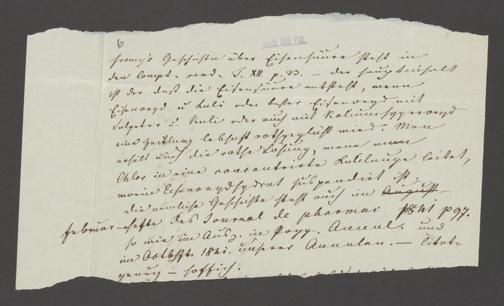 6
Fremy's Geschichte über Eisensäure steht in
den Compt. rend. T. XII. p. 23. — der Hauptinhalt
ist der daß die Eisensäure entsteht, wenn
Eisenoxyd u Kali oder besser Eisenoxyd mit
Salpeter u Kali oder auch mit Kaliumhyperoxyd
eine Zeitlang lebhaft rothgeglüht wird. Man
erhält auch die rothe Lösung, wenn man
Chlor in eine concentrirte Kalilauge leitet,
worin Eisenoxydhydrat suspendirt ist.
Die nämliche Geschichte steht auch im August
Februar-hefte des Journal de pharmac 1841 p 97.
so wie im Ausz. in Pogg. Annal. und
im 1841. unserer Annalen. — Citate
genug — hoffich.